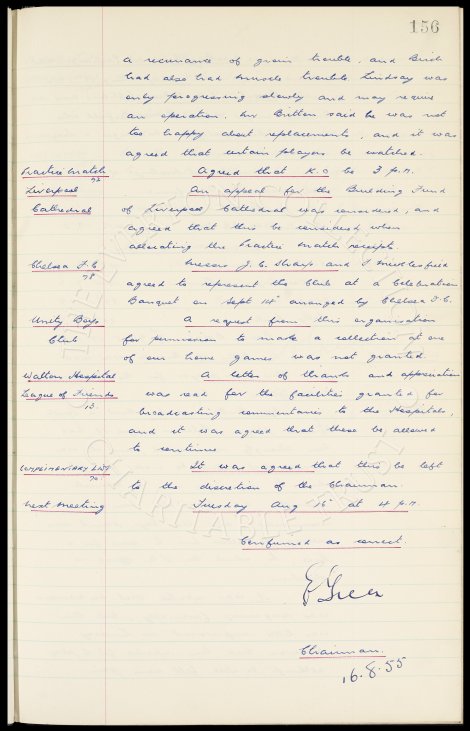 156
a recurrance of groin trouble, and Birch
had also had muscle trouble. Lindsay was
only progressing slowly and may require
an operation. Mr Britton said he was not
too happy about replacements, and it was
agreed that certain players be watched.
Practice Match Agreed that K.O be 3 p.m.
Liverpool An appeal for the Building Fund
Cathedral of Liverpool Cathedral was considered, and
agreed that this be considered when
allocating the Practice Match receipts.
Chelsea F.C Messrs J.C. Sharp and F Micklesfield
agreed to represent the Club at a Celebration
Banquet on Sept 14 arranged by Chelsea F.C.
Unity Boys A request from this organisation
Club for permission to make a collection at one
of our home games was not granted.
Walton Hospital A letter of thanks and appreciation
League of Friends was read for the facilities granted for
broadcasting commentaries to the Hospitals,
and it was agreed that these be allowed
to continue
COMPLIMENTARY LIST It was agreed that this be left
to the discretion of the Chairman.
Next Meeting Tuesday Aug 16 at 4 p.m.
Confirmed as correct.
E Green
Chairman.
16.8.55
CHARITABLE TRUST